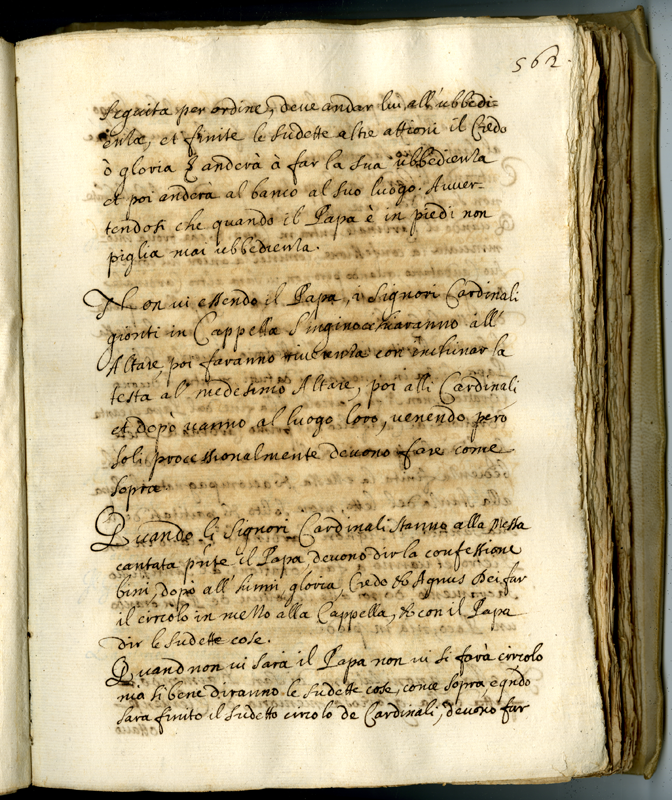 562.
seguita per ordine, deve andar lui all'ubbedi=
enza, et finite le sudette altre attioni il Credo
ò gloria anderà à far la sua ubbedienza
et poi anderà al banco al suo luogo. Auuer-
tendosi che quando il Papa è in piedi non
piglia mai ubbedienza.
Non ui essendo il Papa, i Signori Cardinali
gionti in Cappella s'inginocchiaranno all'
Altare, poi faranno riuerenza con inchinar la
testa al medesimo Altare, poi alli Cardinali
et dopò vanno al luogo loro, uenendo pero
soli processionalmente deuono fare come
sopra.
Quando li Signori Cardinali stanno alla Messa
cantata pnte il Papa deuono dir la confessione
bini, dopo all' gloria, Credo & Agnus Dei far
il circolo in mezzo alla Cappella, & con il Papa
dir le sudette cose.
Quand non ui sarà il Papa non ui si farà circolo
ma si bene diranno le sudette cose, come sopra, e qndo
sara finito il sudetto circolo de Cardinali, deuono far